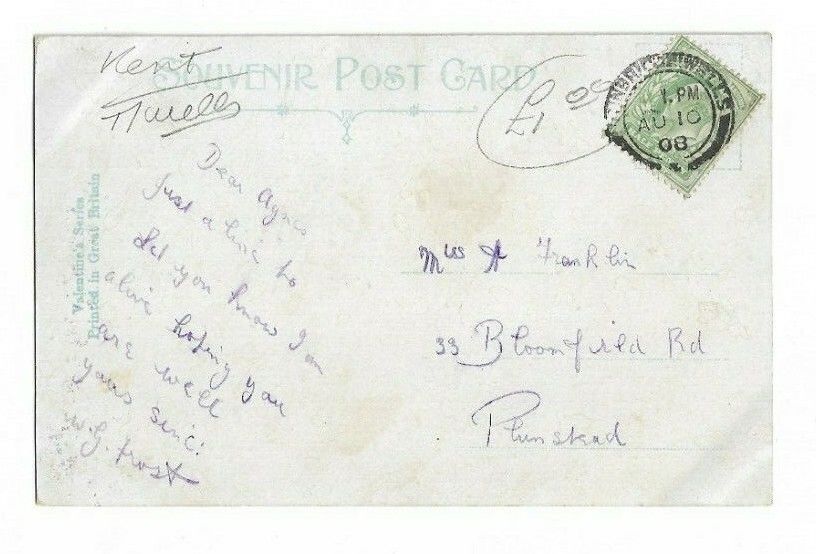 Kent
T Wells
SOUVENIR POST CARD
£1.00
1. PM
AU 10
08
Valentine's Series
Printed in Great Britain
Dear Agnes
Just a line to
let you know I am
alive hoping you
are well
yours sinc:
W.G. Frost
Mrs A Franklin
33 Bloomfield Rd
Plumstead